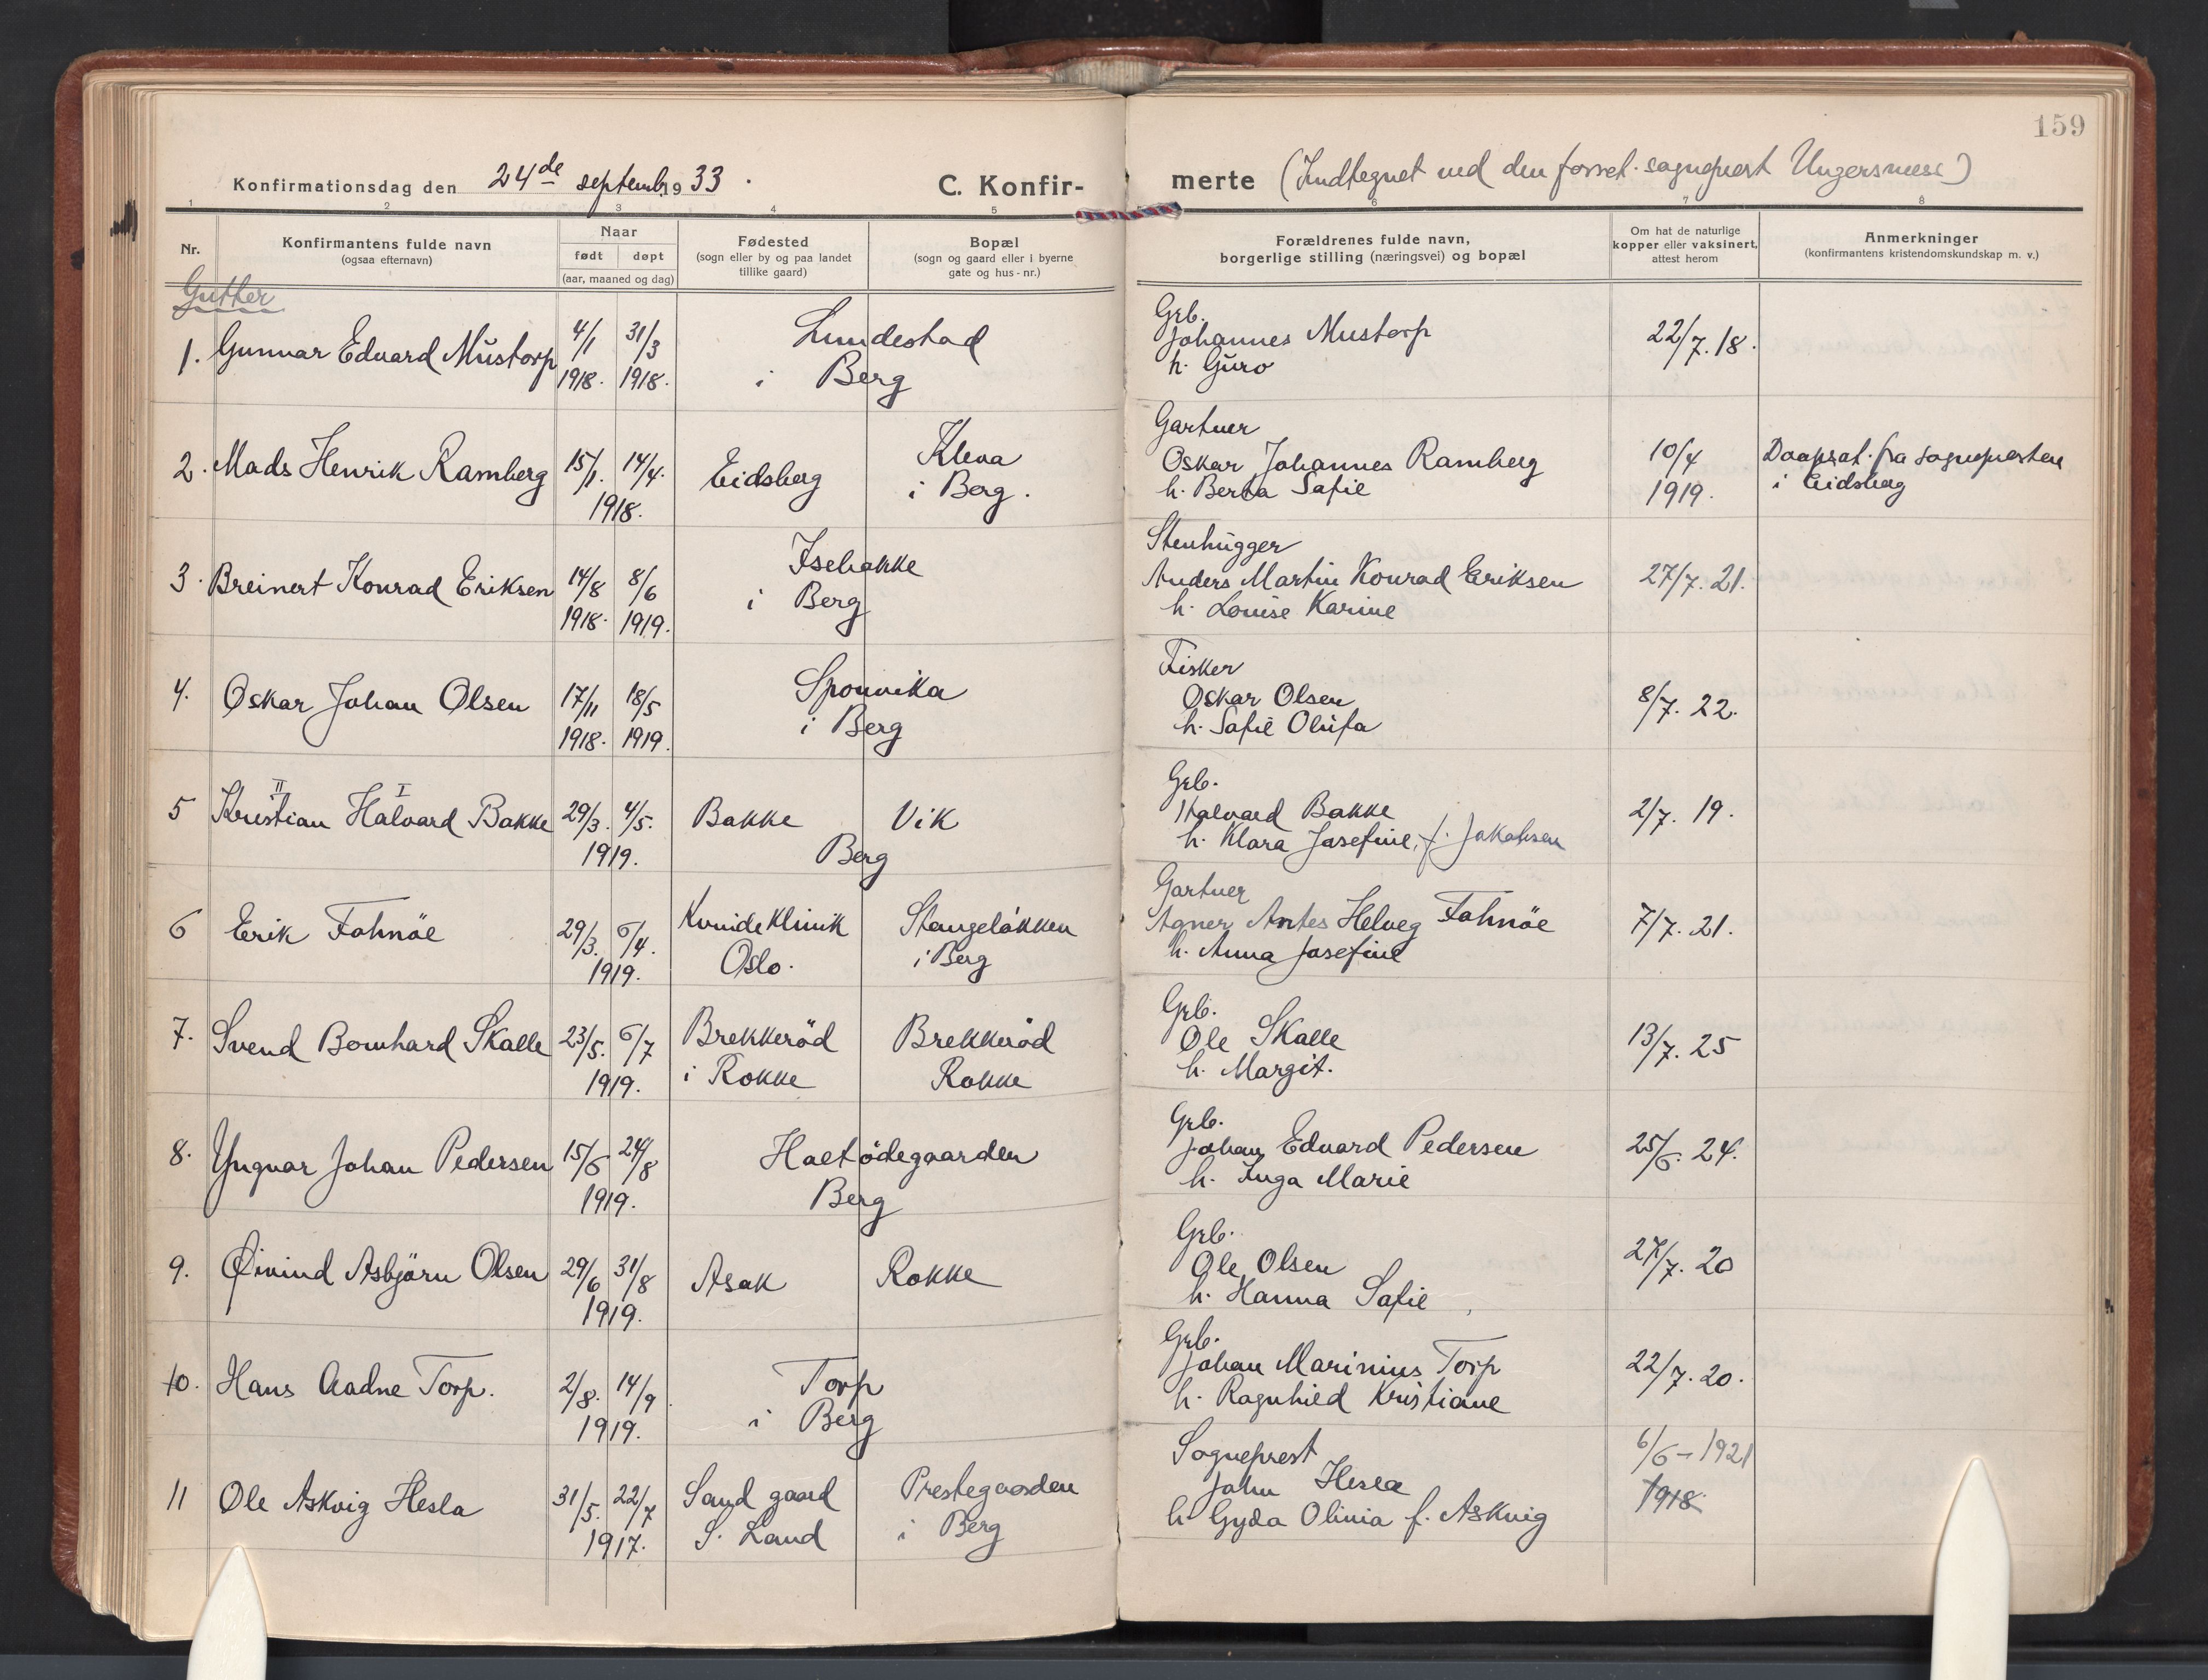 159
Konfirmationsdag den 24de septemb. 1933.
C. Konfir-
merte (Indtegnet ved den forret. sogneprest Ungersness)
1 2 3 4 5 6 7 8
Nr.
Konfirmantens fulde navn
(ogsaa efternavn)
Naar
født døpt
(aar, maaned og dag)
Fødested
(sogn eller by og paa landet
tillike gaard)
Bopæl
(sogn og gaard eller i byerne
gate og hus-nr.)
Forældrenes fulde navn,
borgerlige stilling (næringsvei) og bopæl
Om hat de naturlige
kopper eller vaksinert,
attest herom
Anmerkninger
(konfirmantens kristendomskundskap m. v.)
Gutter
1. Gunnar Edvard Mustorp
4/1 31/3
1918. 1918.
Lundestad
i Berg
Grb.
Johannes Mustorp
h. Guro
22/7. 18.
2. Mads Henrik Ramberg
15/1. 14/4.
1918.
Eidsberg
Kleva
i Berg.
Gartner
Oskar Johannes Ramberg
h. Berta Sofie
10/4
1919.
Daapsat. fra sognepresten
i Eidsberg
3. Breinert Konrad Eriksen
14/8 8/6
1918. 1919.
Isebakke
i Berg
Stenhugger
Anders Martin Konrad Eriksen
h. Louise Karine
27/7. 21.
4. Oskar Johan Olsen
17/11 18/5
1918. 1919.
Sponvika
i Berg
Fisker
Oskar Olsen
h. Sofie Olufa
8/7. 22.
II I
5 Kristian Halvard Bakke
29/3. 4/5.
1919.
Bakke Vik
Berg
Grb.
Halvard Bakke
h. Klara Josefine, f. Jakobsen
2/7. 19.
6 Erik Fahnöe
29/3. 6/4.
1919.
Kvindeklinik
Oslo.
Stangeløkken
i Berg
Gartner
Agner Antes Helveg Fahnöe
h. Anna Josefine
7/7. 21.
7. Svend Bernhard Skalle
23/5. 6/7
1919.
Brekkeröd
i Rokke
Brekkeröd
Rokke
Grb.
Ole Skalle
h. Margit.
13/7. 25
8. Yngvar Johan Pedersen
15/6 24/8
1919.
Holtødegaarden
Berg
Grb.
Johan Edvard Pedersen
h. Inga Marie
25/6. 24.
9. Øivind Asbjörn Olsen
29/6 31/8
1919.
Asak Rokke
Grb.
Ole Olsen
h. Hanna Sofie
27/7. 20
10. Hans Aadne Torp.
2/8. 14/9
1919.
Torp
i Berg
Grb.
Johan Marinius Torp
h. Ragnhild Kristiane
22/7. 20.
11 Ole Askvig Hesla
31/5. 22/7
1917.
Sand gaard
S. Land
Prestegaarden
i Berg
Sogneprest
John Hesla
h. Gyda Olivia f. Askvig
6/6 - 1921
1918